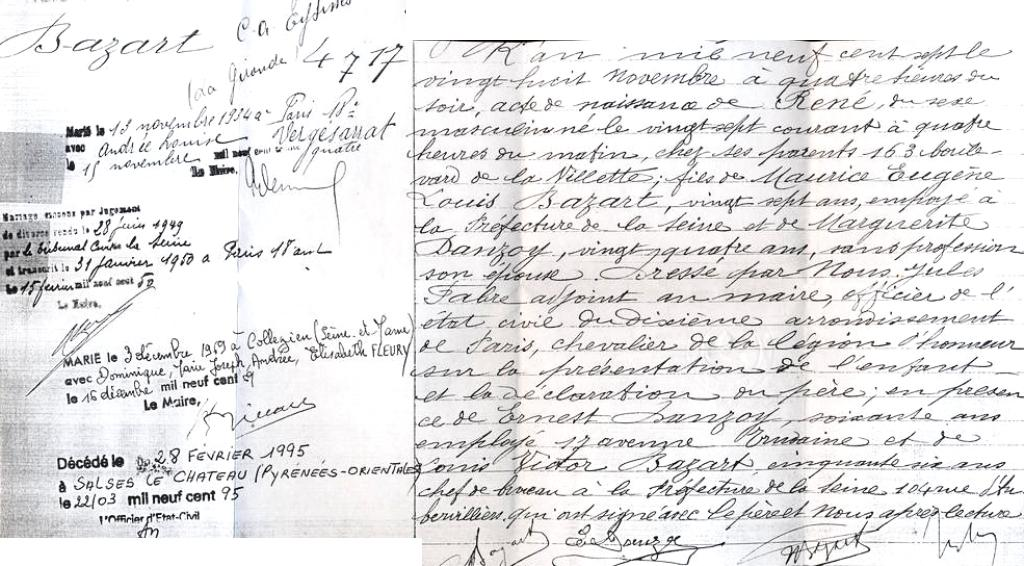 Bazart
C.a Eysines
(la Gironde)
4717
Marié le 13 novembre 1934 à Paris 18e
avec Andrée Louise Vergesarrat
le 15 novembre mil neuf cent trente quatre
Le Maire,
Mariage dissous par Jugement
de divorce rendu le 28 juin 1949
par le tribunal Civil de la Seine
et transcrit le 31 janvier 1950 à Paris 18e arrt
le 15 février mil neuf cent 50
Le Maire,
MARIÉ le 3 décembre 1969 à Collegien (Seine et Marne)
avec Dominique, Marie Joseph, Andrée, Elisabeth FLEURY
le 16 décembre mil neuf cent 69
Le Maire,
Décédé le 28 FEVRIER 1995
à SALSES LE CHATEAU (PYRÉNÉES-ORIENTALES)
le 22/03 mil neuf cent 95
l'Officier d'Etat-Civil
L'an mil neuf cent sept le
vingt huit Novembre à quatre heures du
soir, acte de naissance de René, du sexe
masculin né le vingt sept courant à quatre
heures du matin, chez ses parents 163 boule-
vard de la Villette; fils de Maurice Eugène
Louis Bazart, vingt sept ans, employé à
la Préfecture de la Seine et de Marguerite
Danzoy, vingt quatre ans, sans profession
son épouse. Dressé par Nous, Jules
Fabre adjoint au maire, officier de l'
état civil du dixième arrondissement
de Paris, chevalier de la Légion d'honneur
sur la présentation de l'enfant
et la déclaration du père; en présen
ce de Ernest Danzoy, soixante ans
employé 17 avenue Trudaine et de
Louis Victor Bazart, cinquante six ans
chef de bureau à la Préfecture de la Seine 104 rue d'Au
bervilliers, qui ont signé avec le père et Nous après lecture